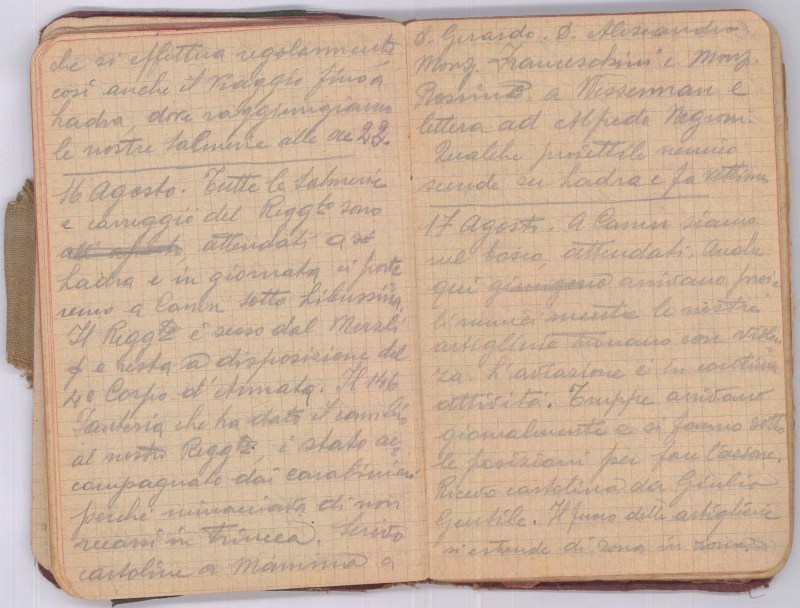 che si effettua regolarmente
così anche il viaggio fino a
Ladra, dove raggiungiamo
le nostre salmerie alle ore 22.
16 Agosto. Tutte le Salmerie
e carreggio del Reggto sono
attendati a
Ladra e in giornata ci porte
remo a Camn sotto Libussina
Il Reggto è sceso dal Merzli
e resta a disposizione del
4º Corpo d'Armata. Il 146
Fanteria che ha dato il cambio
al nostro Reggto, è stato ac
compagnato dai carabinieri
perchè minacciata di non
recarsi in trincea. Scrivo
cartoline a Mamma a
S. Gerardo. S. Alessandro
Monz. Franceschini e Monz.
a e
lettera ad Alfredo Negroni.
Qualche proiettile nemico
scende su Ladra e fa vittime
17 Agosto. A Camn siamo
nel bosco, attendati. Anche
qui giungono arrivano proiet
li nemici mentre le nostre
artiglierie tuonano con violen
za. L'aviazione è in continua
attività. Truppe arrivano
giornalmente e si fanno sotto
le posizioni per fare l'azione.
Ricevo cartolina da Giulio
Gentile. Il fuoco delle artiglierie
si estende di zona in zona.